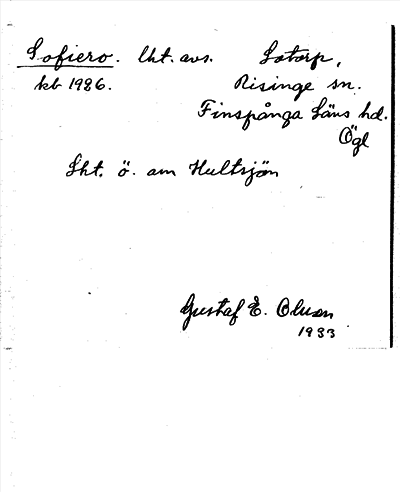 Sofiero. lht. avs. Sotorp,
kb 1926. Risinge sn.
Finspånga Läns hd.
Ögl
Lht. ö. om Hultsjön
Gustaf E. Olsson
1933